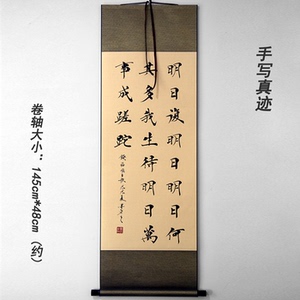 明日復明日明日何
其多我生待明日萬
事成蹉跎
手写真迹
卷轴大小：145cm*48cm（约）